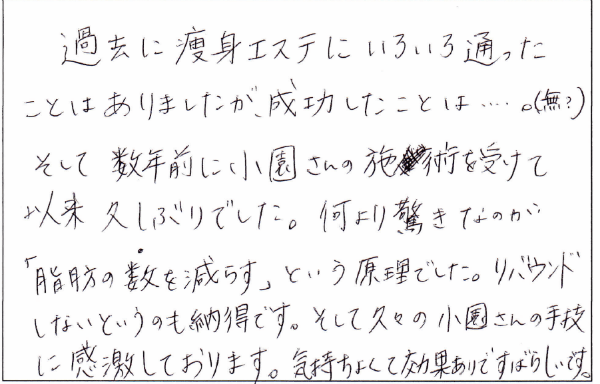 過去に痩身エステにいろいろ通った
ことはありましたが、成功したことは‥‥。(無?)
そして 数年前に小園さんの施術を受けて
以来 久しぶりでした。何より驚きなのが
「脂肪の数を減らす」という原理でした。リバウンド
しないというのも納得です。そして久々の小園さんの手技
に感激しております。気持ちよくて効果ありですばらしいです。